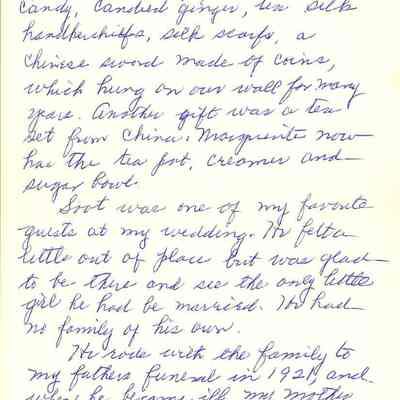 candy, candied ginger, six silk
handkerchiefs, silk scarfs, a
Chinese sword made of coins,
which hung on our wall for many
years. Another gift was a tea
set from China. Marguerite now
has the tea pot, creamer and
sugar bowl.
Soot was one of my favorite
guests at my wedding. He felt a
little out of place but was glad
to be there and see the only little
girl he had be married. He had
no family of his own.
He rode with the family to
my fathers funeral in 1921, and
when he became ill my mother